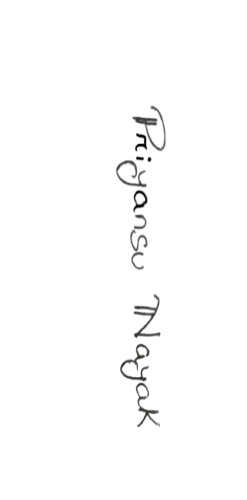 Priyansu Nayak